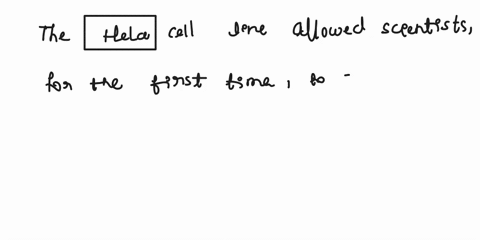 The Hela cell line allowed scientists,
for the first time, to -